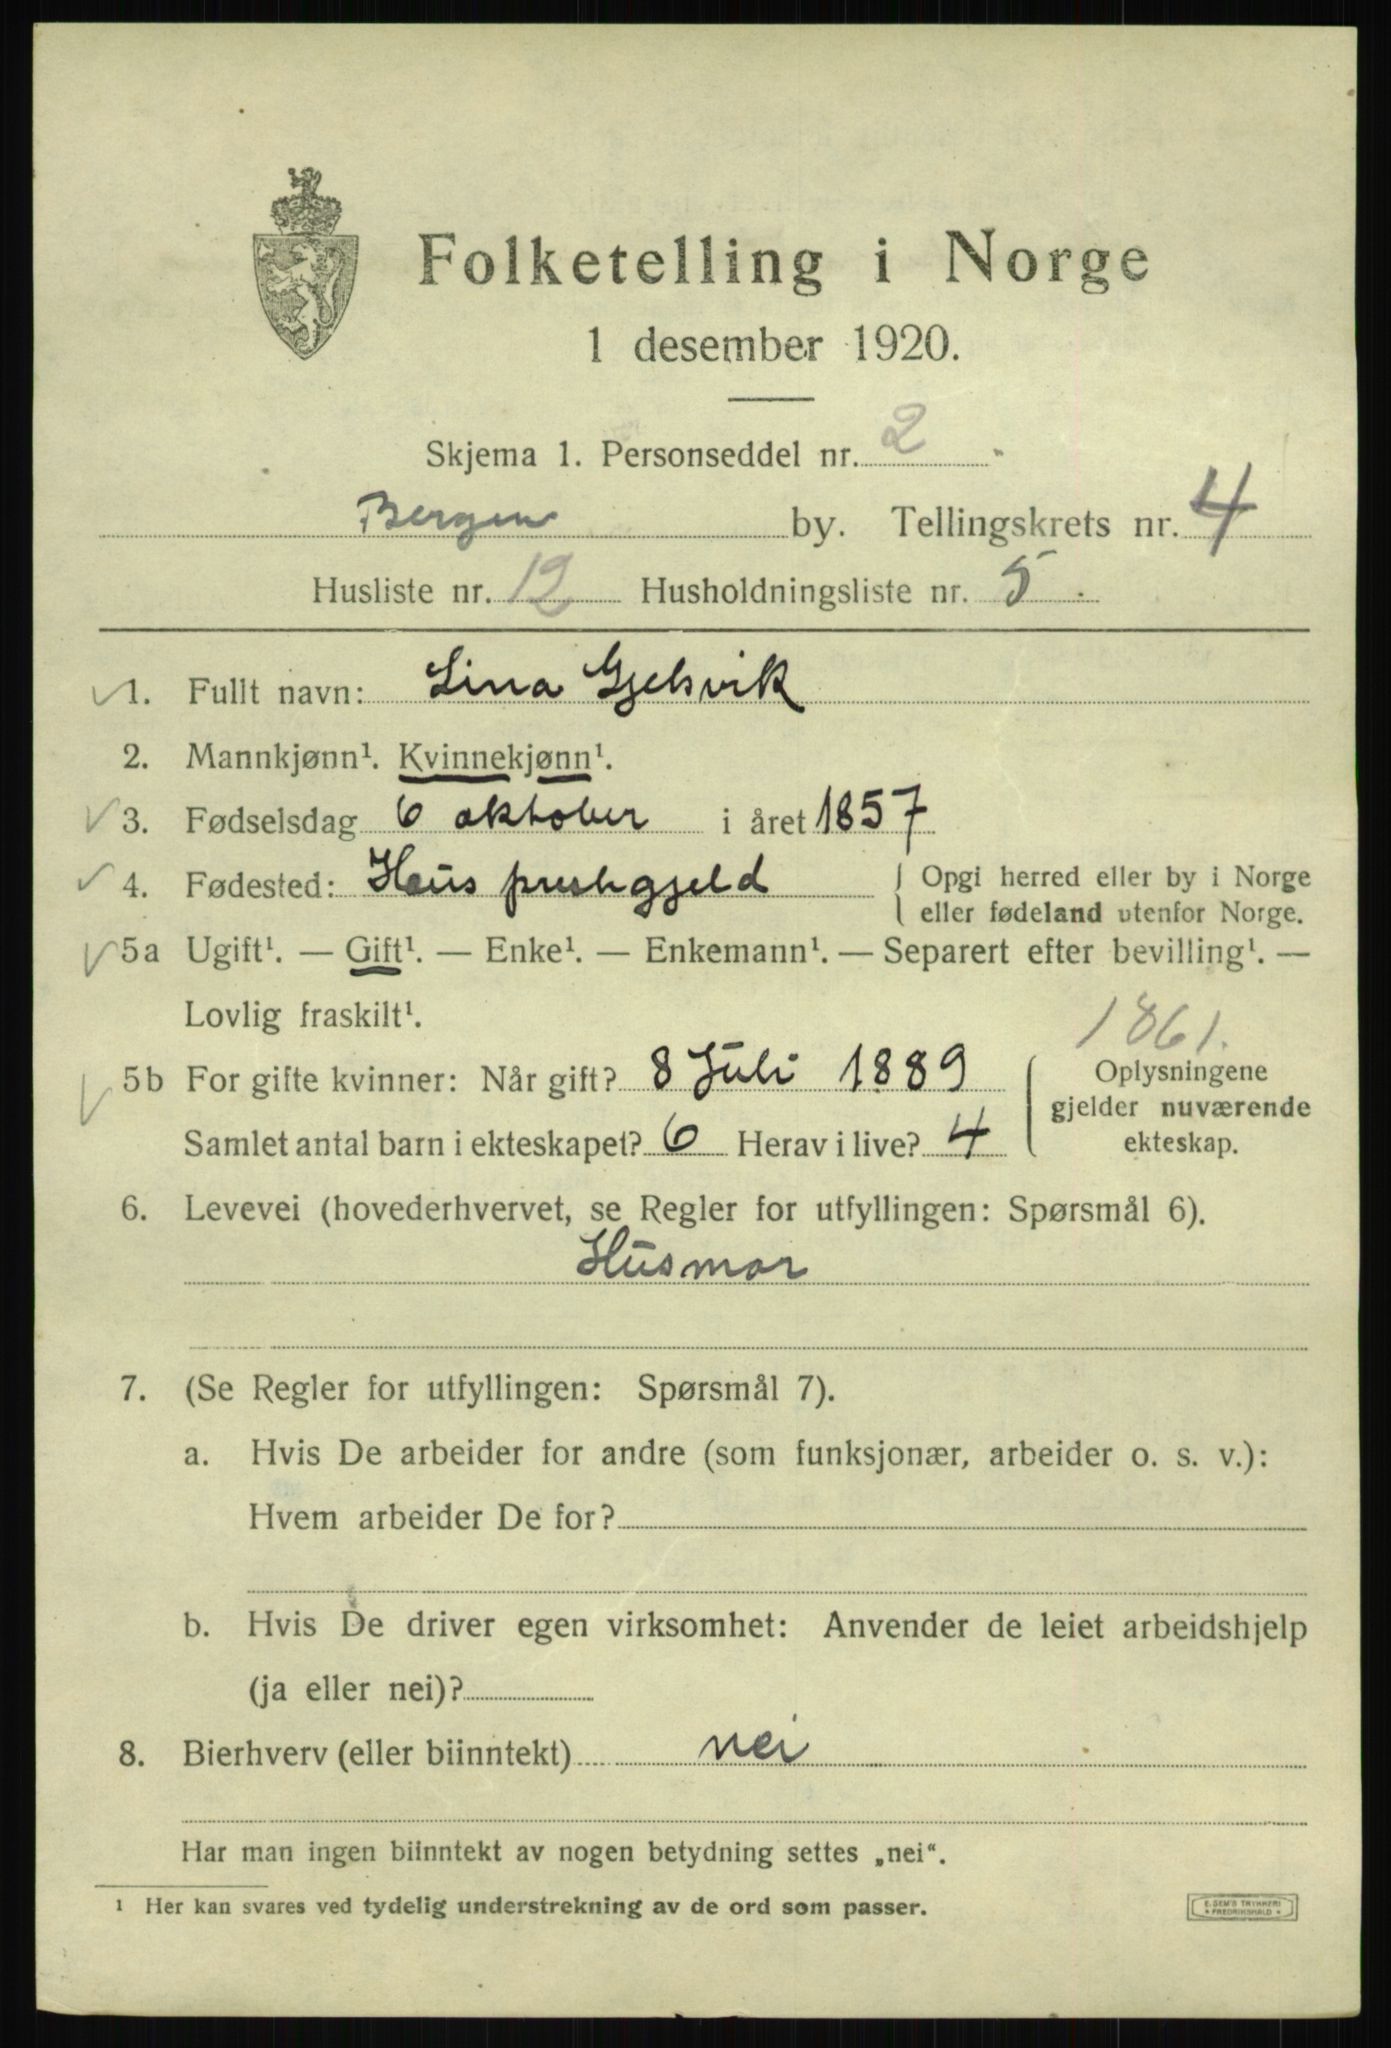 Folketelling i Norge
1 desember 1920.
Skjema 1. Personseddel nr. 2
Bergen by. Tellingskrets nr. 4
Husliste nr. 12 Husholdningsliste nr. 5
1. Fullt navn: Lina Gjelsvik
2. Mannkjønn¹. Kvinnekjønn¹.
3. Fødselsdag 6 oktober i året 1857
4. Fødested: Haus prestegjeld
Opgi herred eller by i Norge
eller fødeland utenfor Norge.
5a Ugift¹. — Gift¹. — Enke¹. — Enkemann¹. — Separert efter bevilling¹. —
Lovlig fraskilt¹.
1861.
5b For gifte kvinner: Når gift? 8 Juli 1889
Samlet antal barn i ekteskapet? 6 Herav i live? 4
Oplysningene
gjelder nuværende
ekteskap.
6. Levevei (hovederhvervet, se Regler for utfyllingen: Spørsmål 6).
Husmor
7. (Se Regler for utfyllingen: Spørsmål 7).
a. Hvis De arbeider for andre (som funksjonær, arbeider o. s. v.):
Hvem arbeider De for?
b. Hvis De driver egen virksomhet: Anvender de leiet arbeidshjelp
(ja eller nei)?
8. Bierhverv (eller biinntekt) nei
Har man ingen biinntekt av nogen betydning settes „nei“.
¹ Her kan svares ved tydelig understrekning av de ord som passer.
E. SEM'S TRYKKERI
* FREDRIKSHALD *